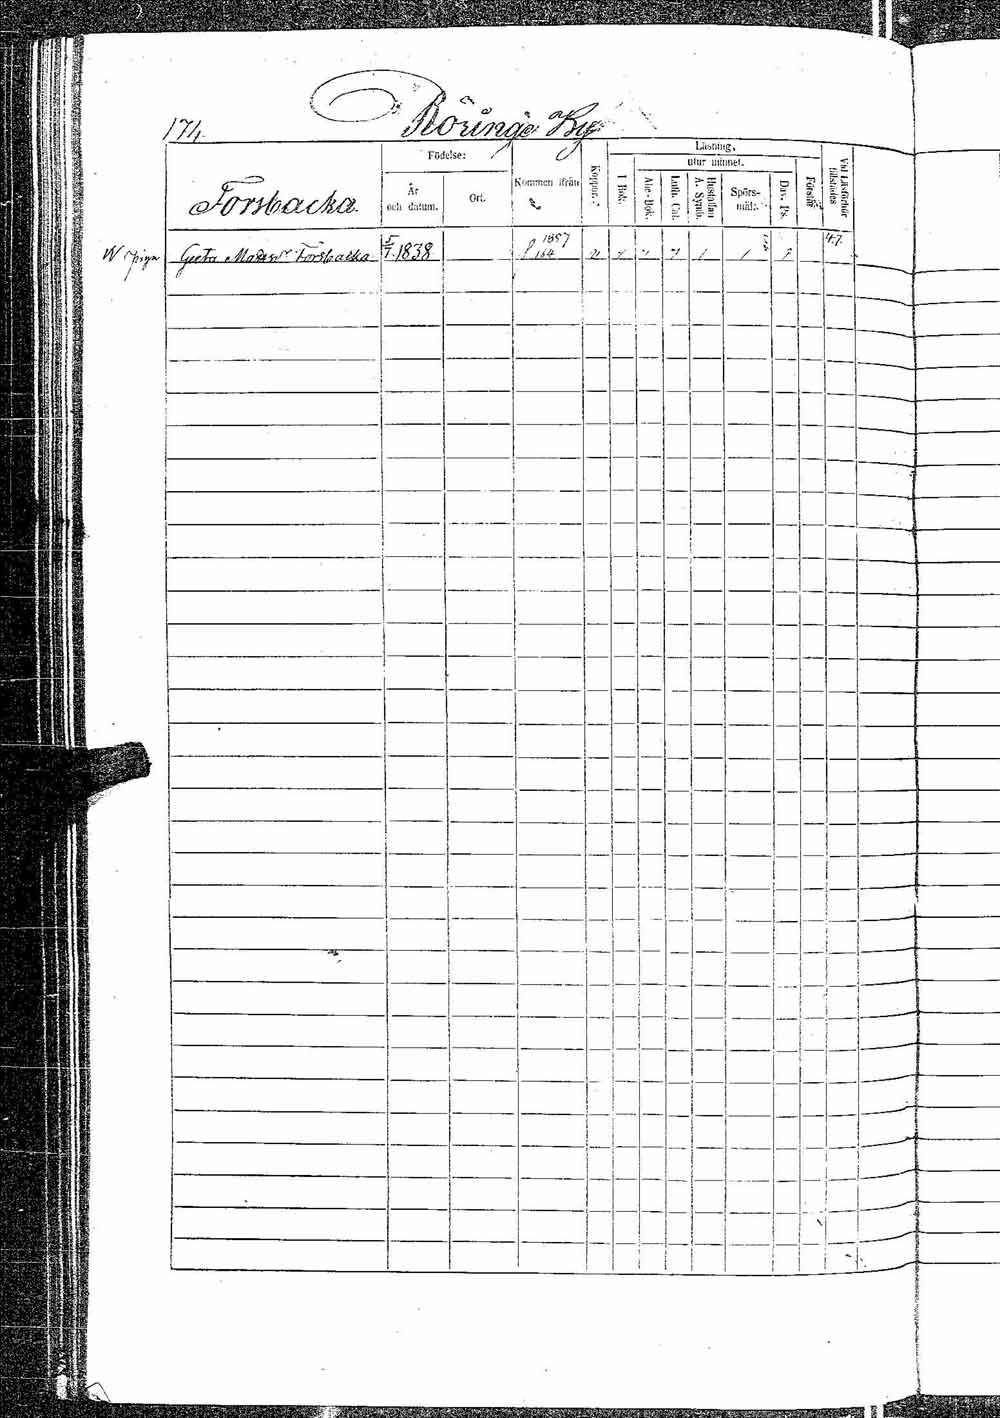 174.
Röringe By
Forsbacka.
Födelse:
År och datum.
Ort.
Kommen ifrån
Koppor.
Läsning,
utur minnet.
I Bok.
Abc-Bok.
Luth. Cat.
Hustaflan A. Symb.
Spörs-mål.
Dav. Ps.
Förstår
Vid Läsförhör tillstädes
piga Greta Forsbacka 5/1 1838 1857 164 47